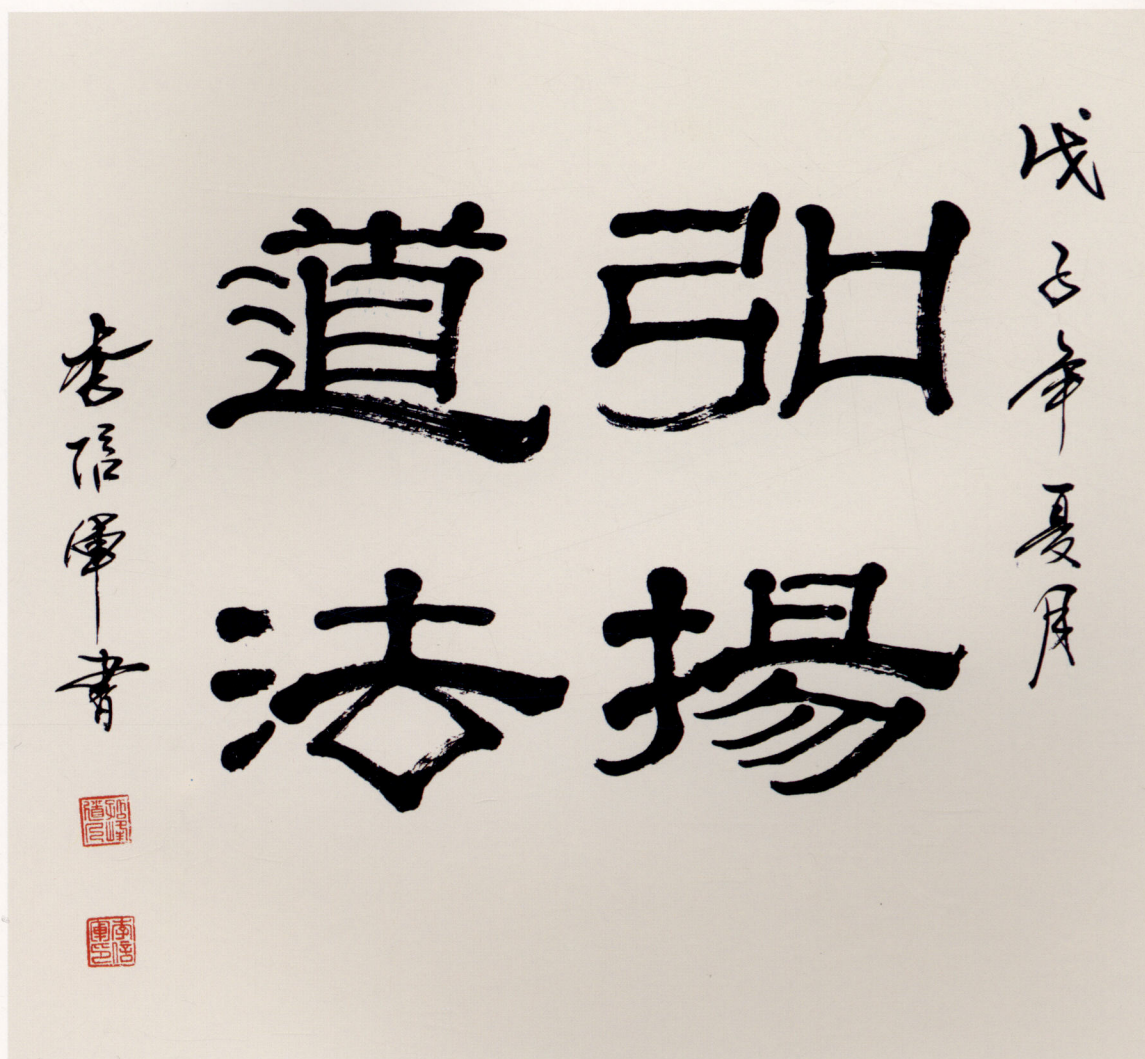 戊子年夏月
弘揚
道法
李信軍書
李信軍印